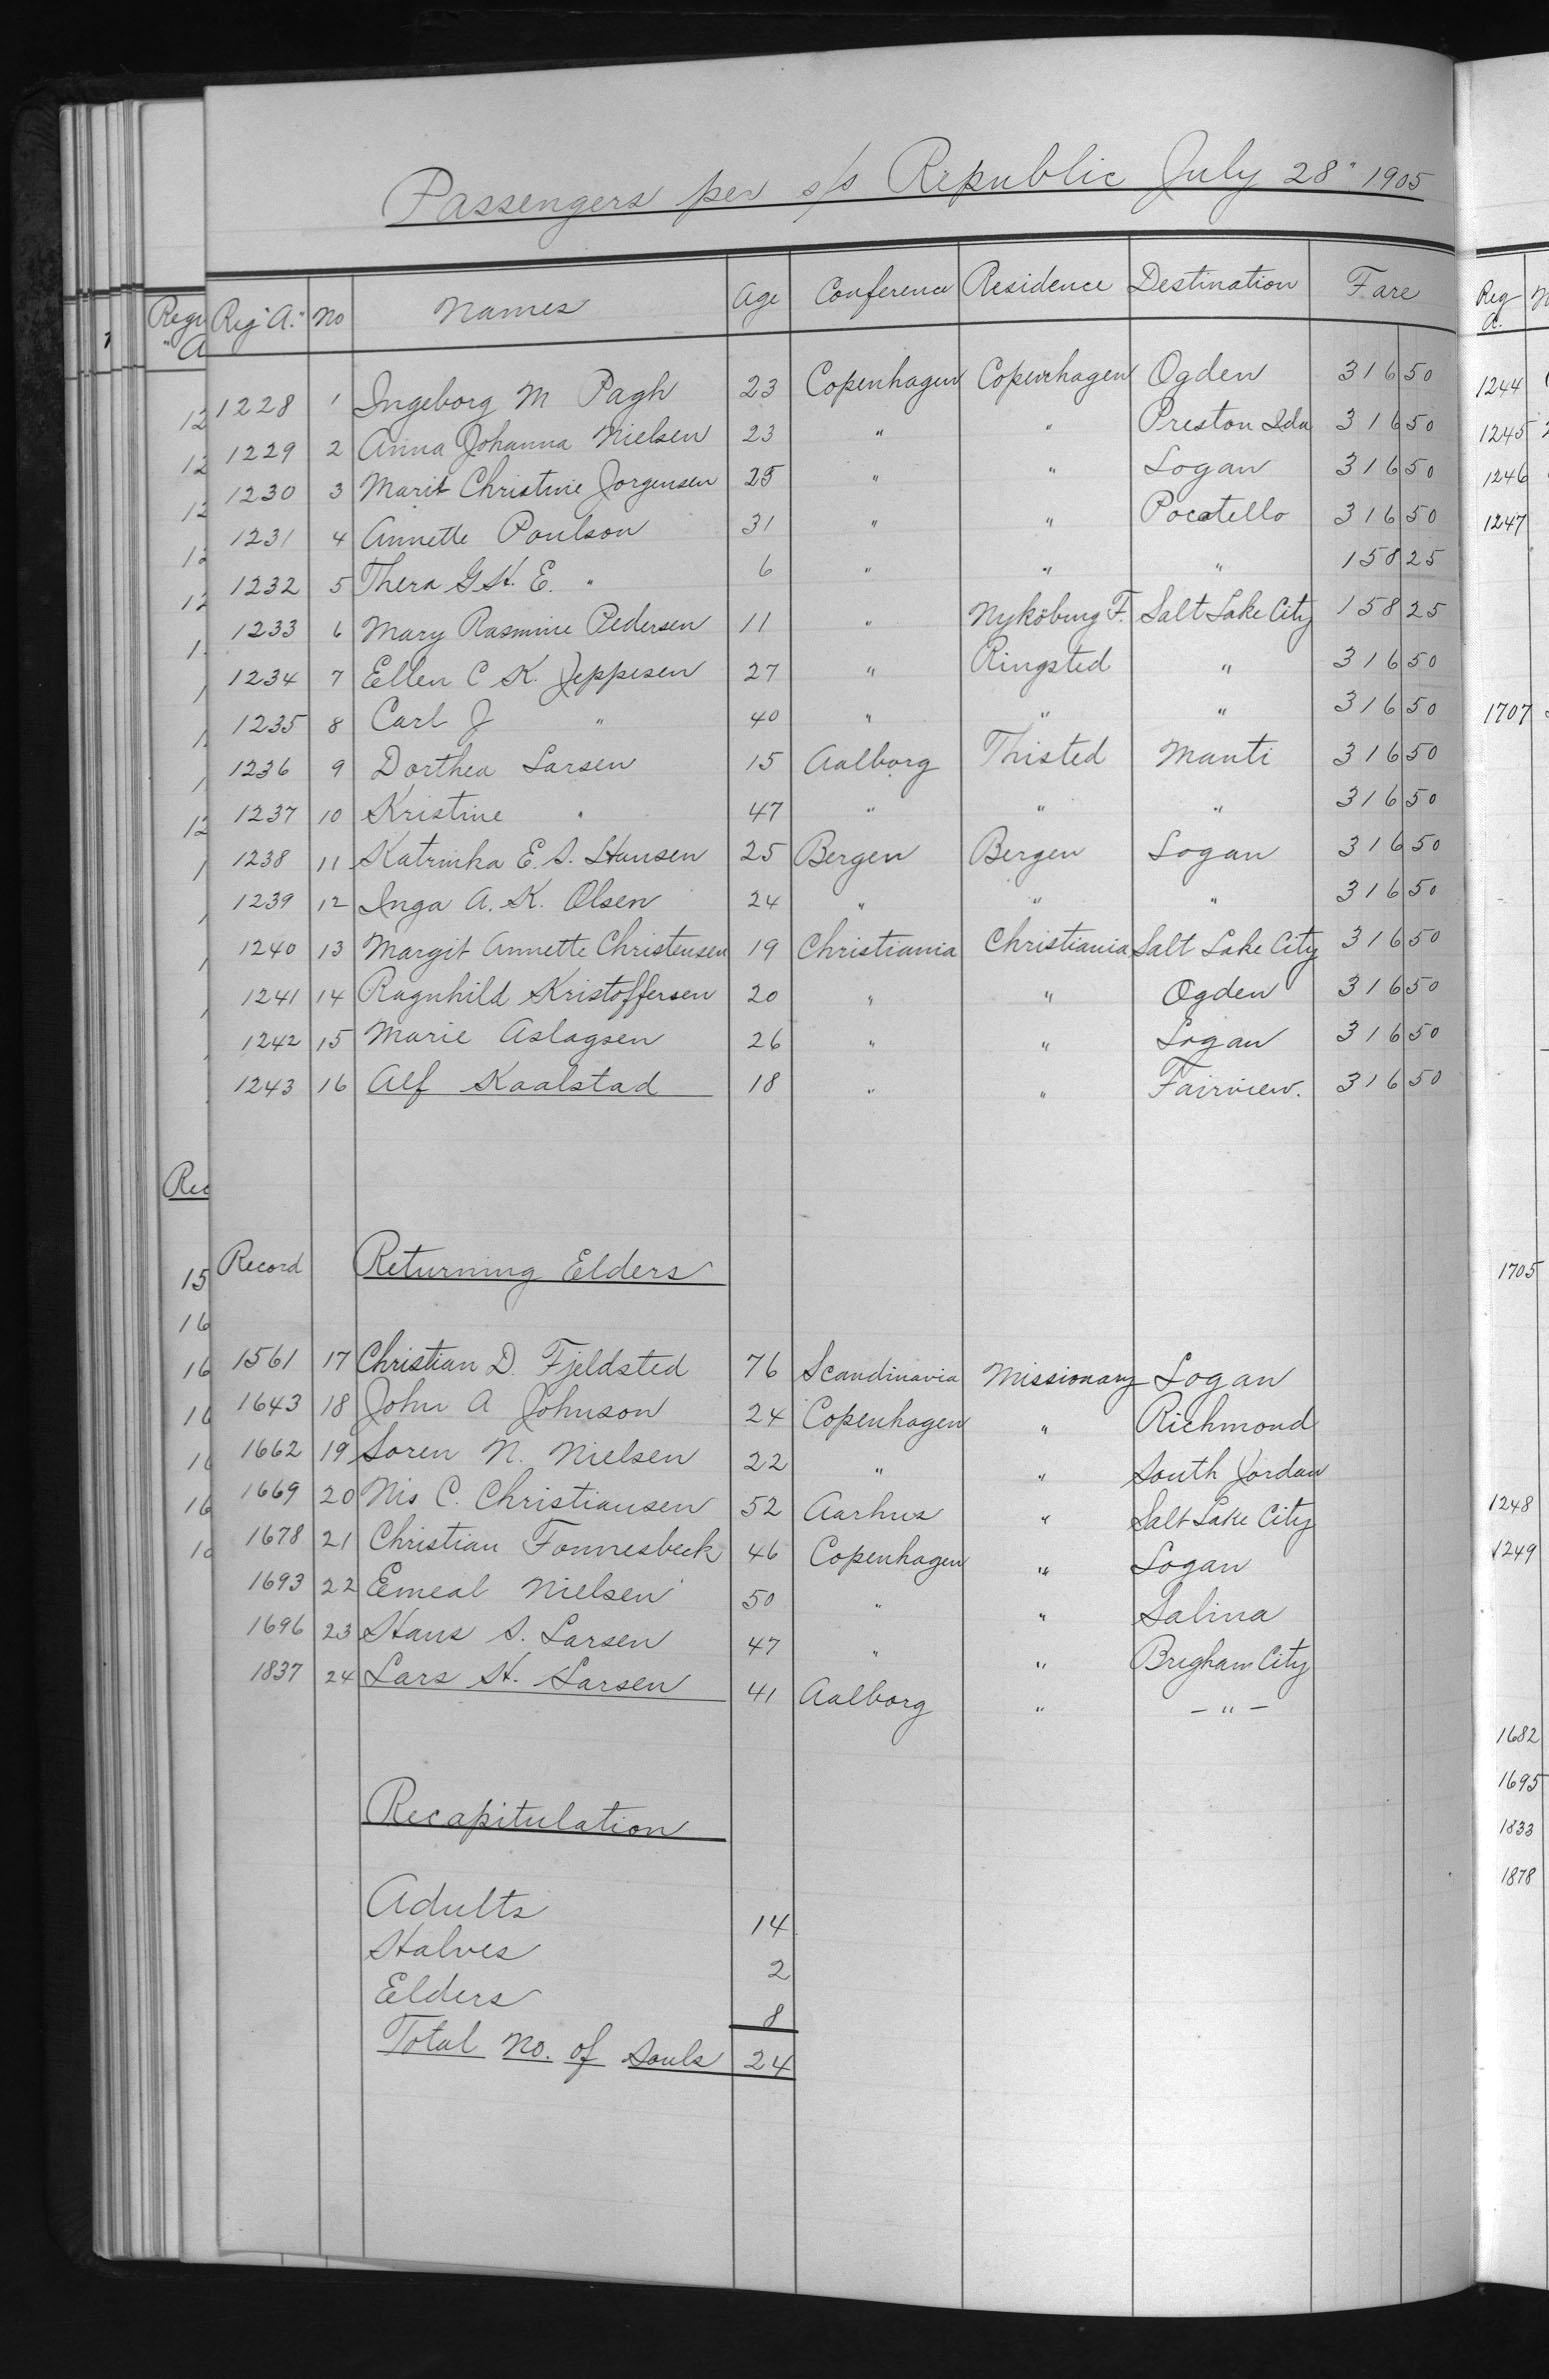 Passengers per s/s Republic July 28" 1905
Reg "A." No Names Age Conference Residence Destination Fare
1228 1 Ingeborg M Pagh 23 Copenhagen Copenhagen Ogden 316 50
1229 2 Anna Johanna Nielsen 23 " " Preston Ida 316 50
1230 3 Marit Christine Jorgensen 25 " " Logan 316 50
1231 4 Annette Poulson 31 " " Pocatello 316 50
1232 5 Thera G H. E. " 6 " " " 158 25
1233 6 Mary Rasmine Pedersen 11 " Nyköbing F. Salt Lake City 158 25
1234 7 Ellen C K. Jeppesen 27 " Ringsted " 316 50
1235 8 Carl J " 40 " " " 316 50
1236 9 Dorthea Larsen 15 Aalborg Thisted Manti 316 50
1237 10 Kristine " 47 " " " 316 50
1238 11 Katrinka E. S. Hansen 25 Bergen Bergen Logan 316 50
1239 12 Inga A. K. Olsen 24 " " " 316 50
1240 13 Margit Annette Christensen 19 Christiania Christiania Salt Lake City 316 50
1241 14 Ragnhild Kristoffersen 20 " " Ogden 316 50
1242 15 Marie Aslagsen 26 " " Logan 316 50
1243 16 Alf Kaalstad 18 " " Fairview. 316 50
Record Returning Elders
1561 17 Christian D. Fjeldsted 76 Scandinavia Missionary Logan
1643 18 John A Johnson 24 Copenhagen " Richmond
1662 19 Soren N. Nielsen 22 " " South Jordan
1669 20 Nis C. Christiansen 52 Aarhus " Salt Lake City
1678 21 Christian Fonnesbeck 46 Copenhagen " Logan
1693 22 Eemeal Nielsen 50 " " Salina
1696 23 Hans S. Larsen 47 " " Brigham City
1837 24 Lars H. Larsen 41 Aalborg " — " —
Recapitulation
Adults 14
Halves 2
Elders 8
Total No. of Souls 24
Reg A.
1244
1245
1246
1247
1707
1705
1248
1249
1682
1695
1833
1878